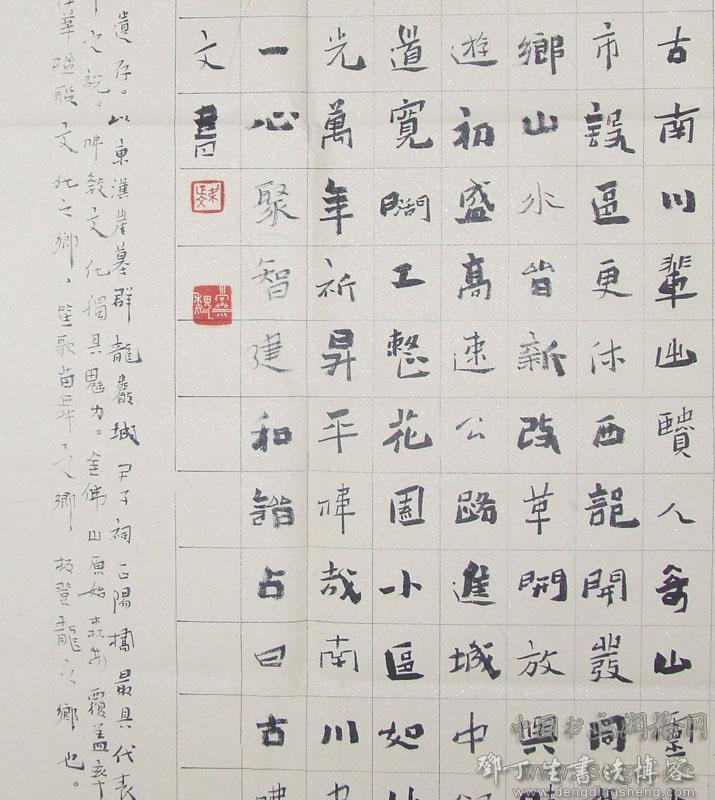 古南川輩出賢人奇山靈
市設區更沐西部開發同
鄉山水皆新改革開放與
遊初盛高速公路進城中
道寬闊工整花園小區如
光萬年祈昇平偉哉南川
一心聚智建和諧占曰古
文書
遺存。以東漢崖墓群龍巖城尹子祠正陽橋最具代表
之說。碑教文化獨具魅力。金佛山原始森林覆蓋率
華楹聯文化之鄉，笙歌苗舞之鄉 板凳龍之鄉也。
中国书画润格网
鄧丁生書法博客
www.dengdingsheng.com